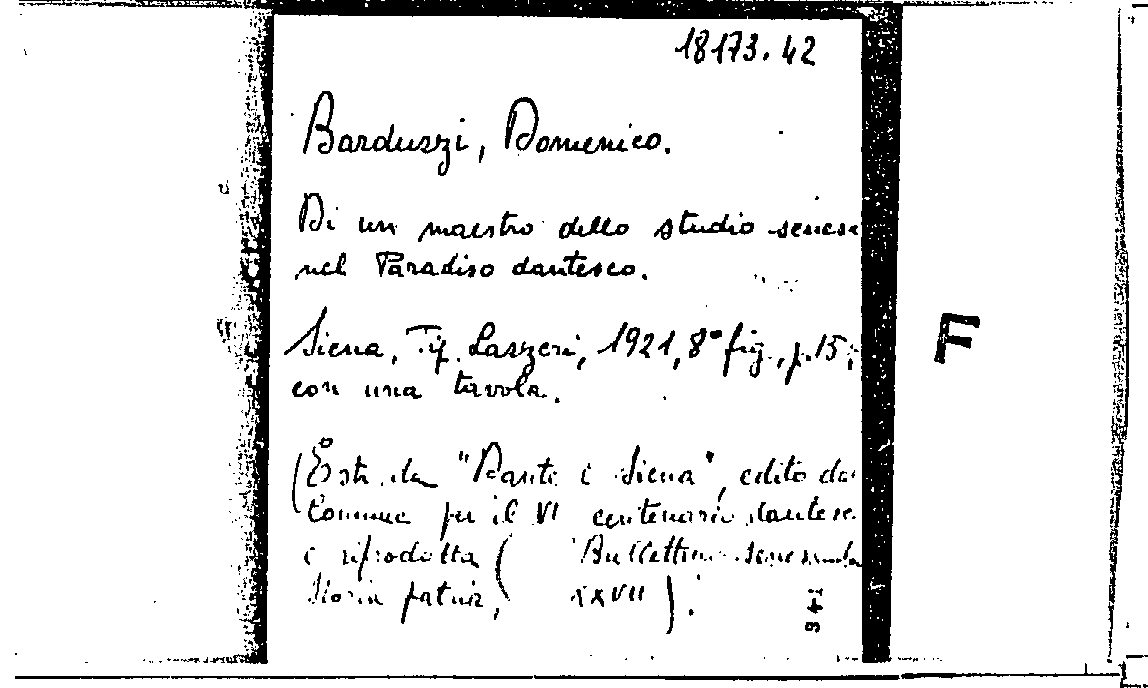 18173.42
Barduzzi, Domenico.
Di un maestro dello studio senese
nel Paradiso dantesco.
Siena, Tip. Lazzeri, 1921, 8° fig., p.15,
con una tavola.
(Estr. da "Dante e Siena", edito dal
Comune per il VI centenario dantesc.
e riprodotta ( Bullettino senese
Storia patria, XXVII ).
F